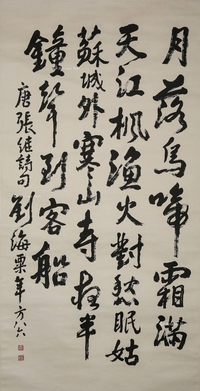 月落烏啼霜滿
天江楓漁火對愁眠姑
蘇城外寒山寺夜半
鐘聲到客船
唐張繼詩句 劉海粟年方八六